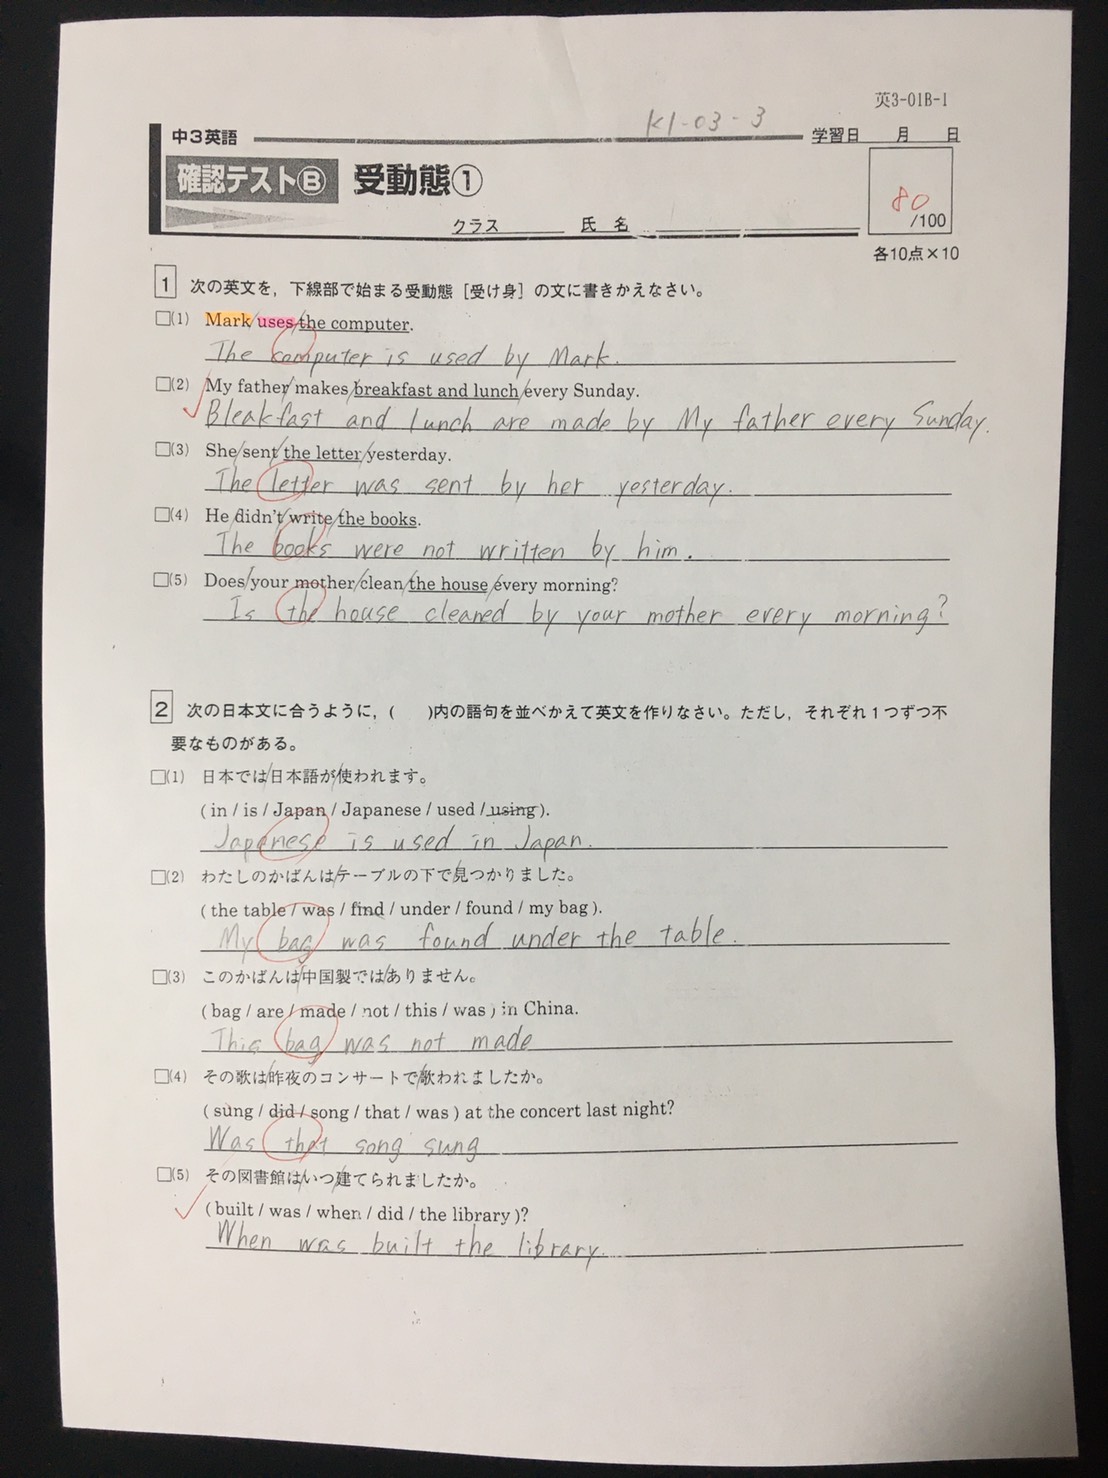 英3-01B-1
K1-03-3
中3英語
学習日 月 日
確認テストⒷ 受動態①
80
/100
クラス 氏名
各10点×10
1 次の英文を，下線部で始まる受動態［受け身］の文に書きかえなさい。
□(1) Mark/uses/the computer.
The computer is used by Mark.
□(2) My father/makes/breakfast and lunch/every Sunday.
Bleakfast and lunch are made by My father every Sunday.
□(3) She/sent/the letter/yesterday.
The letter was sent by her yesterday.
□(4) He/didn't/write/the books.
The books were not written by him.
□(5) Does/your mother/clean/the house/every morning?
Is the house cleaned by your mother every morning?
2 次の日本文に合うように，( )内の語句を並べかえて英文を作りなさい。ただし，それぞれ1つずつ不
要なものがある。
□(1) 日本では/日本語が/使われます。
( in / is / Japan / Japanese / used / using ).
Japenese is used in Japan.
□(2) わたしのかばんは/テーブルの下で/見つかりました。
( the table / was / find / under / found / my bag ).
My bag was found under the table.
□(3) このかばんは/中国製では/ありません。
( bag / are / made / not / this / was ) in China.
This bag was not made
□(4) その歌は/昨夜の/コンサートで/歌われましたか。
( sung / did / song / that / was ) at the concert last night?
Was that song sung
□(5) その図書館は/いつ/建てられましたか。
( built / was / when / did / the library )?
When was built the library.